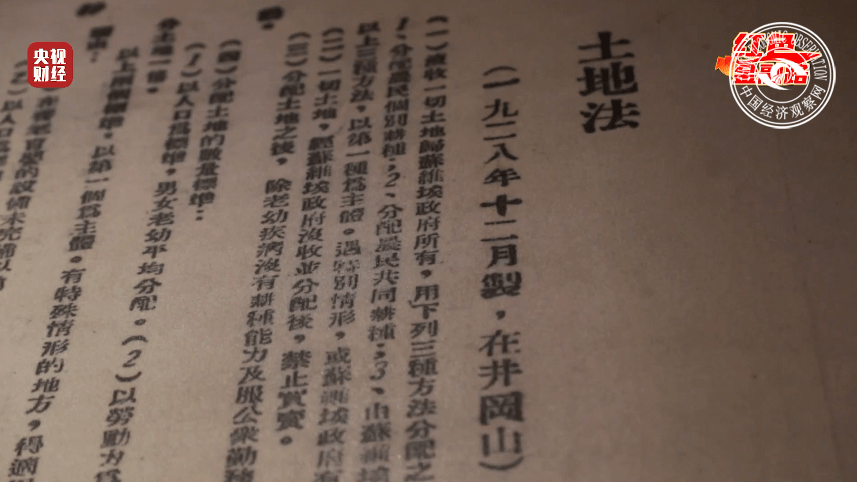 央视
财经
中国经济观察网
土地法
(一九二八年十二月製,在井岡山)
(一)沒收一切土地歸蘇維埃政府所有,用下列三種方法分配之
1、分配農民個別耕種;2、分配農民共同耕種;3、由蘇維埃
以上三種方法,以第一種爲主體。遇特別情形,或蘇維埃政府有
(二)一切土地,經蘇維埃政府沒收並分配後,禁止買賣。
(三)分配土地之後,除老幼疾病沒有耕種能力及服公衆勤務
(四)分配土地的數量標準:
(1)以人口爲標準,男女老幼平均分配。(2)以勞動力爲
分土地一倍。
以上兩個標準,以第一個爲主體。有特殊情形的地方,得適
理由:
在養老育嬰的設備未完備以前
(2)以人口